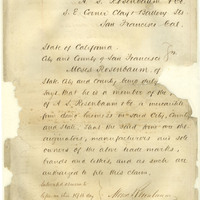 A. S. Rosenbaum & Co.
S. E. Corner Clay & Battery Sts
San Francisco Cal.
State of California
City and County of San Francisco } ss
Moses Rosenbaum of
State, City and County being duly
says that he is a member of the
of A. S. Rosenbaum & Co. a mercantile
firm doing business in said City, County
and State. That the said firm are the
originators, manufacturers and sole
owners of the above trade marks,
brands and labels, and as such are
entitled to file this claim.
Subscribed & sworn to
day